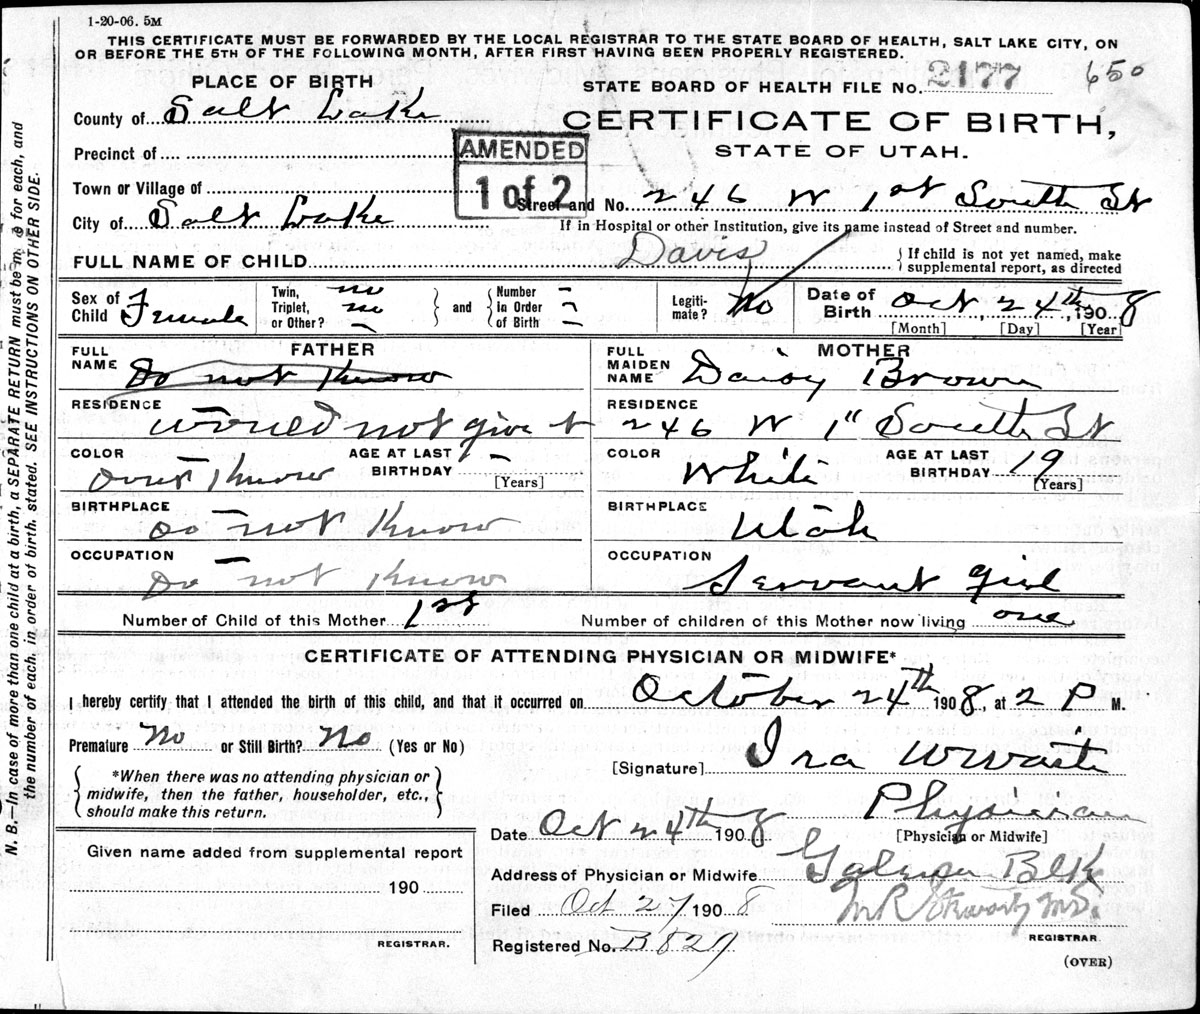 1-20-06. 5M
THIS CERTIFICATE MUST BE FORWARDED BY THE LOCAL REGISTRAR TO THE STATE BOARD OF HEALTH, SALT LAKE CITY, ON
OR BEFORE THE 5TH OF THE FOLLOWING MONTH, AFTER FIRST HAVING BEEN PROPERLY REGISTERED.
PLACE OF BIRTH
STATE BOARD OF HEALTH FILE No. 2177 650
County of Salt Lake
CERTIFICATE OF BIRTH,
STATE OF UTAH.
Precinct of
AMENDED
1 of 2
Town or Village of
Street and No. 246 W 1st South St
City of Salt Lake
If in Hospital or other Institution, give its name instead of Street and number.
FULL NAME OF CHILD Davis
{ If child is not yet named, make
supplemental report, as directed
Sex of Child Female
Twin, no
Triplet, no
or Other? –
and
Number –
in Order –
of Birth –
Legiti-
mate? No
Date of Birth Oct, 24th, 1908
[Month] [Day] [Year]
FATHER
FULL NAME Do not Know
RESIDENCE would not give it
COLOR Dont Know
AGE AT LAST BIRTHDAY –
[Years]
BIRTHPLACE Do not Know
OCCUPATION Do not Know
MOTHER
FULL MAIDEN NAME Daisy Brown
RESIDENCE 246 W 1" South St
COLOR White
AGE AT LAST BIRTHDAY 19
[Years]
BIRTHPLACE Utah
OCCUPATION Servant girl
Number of Child of this Mother 1st
Number of children of this Mother now living one
CERTIFICATE OF ATTENDING PHYSICIAN OR MIDWIFE*
I hereby certify that I attended the birth of this child, and that it occurred on October 24th 1908, at 2 P M.
Premature No or Still Birth? No (Yes or No)
[Signature] Ira W
*When there was no attending physician or
midwife, then the father, householder, etc.,
should make this return.
Physician
[Physician or Midwife]
Date Oct 24th 1908
Given name added from supplemental report
190
REGISTRAR.
Address of Physician or Midwife Blk
Filed Oct 27 1908
M R Stewart M.D.
REGISTRAR.
Registered No. B 829
(OVER)
N. B.—In case of more than one child at a birth, a SEPARATE RETURN must be made for each, and
the number of each, in order of birth, stated. SEE INSTRUCTIONS ON OTHER SIDE.